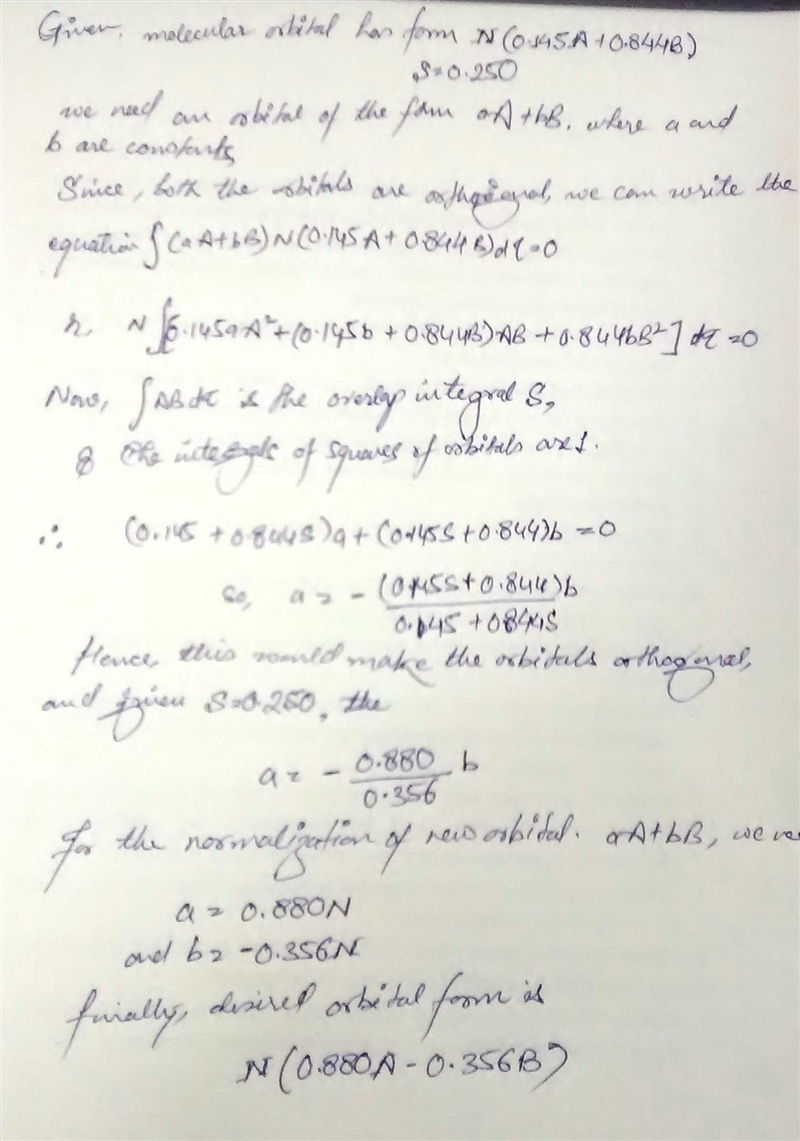 Given, molecular orbital has form N(0.145A+0.844B)
S=0.250
we need an orbital of the form aA+bB, where a and
b are constants
Since, both the orbitals are orthogonal, we can write the
equation ∫(aA+bB)N(0.145A+0.844B)dτ=0
N∫[0.145aA²+(0.145b+0.844B)AB+0.844bB²]dτ=0
Now, ∫ABdτ is the overlap integral S,
& the integrals of squares of orbitals are 1.
∴ (0.145+0.844S)a+(0.145S+0.844)b=0
so, a = - (0.145S+0.844)b
0.145+0.844S
Hence, this would make the orbitals orthogonal,
and given S=0.250, the
a = - 0.880 b
0.356
For the normalization of new orbital. aA+bB, we
a = 0.880N
and b = -0.356N
finally, desired orbital form is
N(0.880A-0.356B)